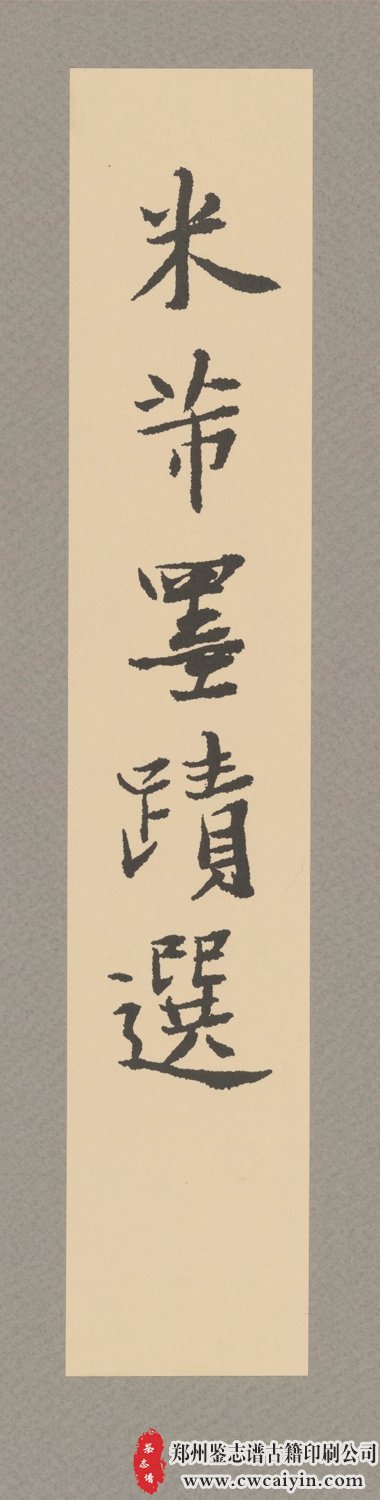 米芾墨蹟選
鉴志谱
郑州鉴志谱古籍印刷公司
www.cwcaiyin.com